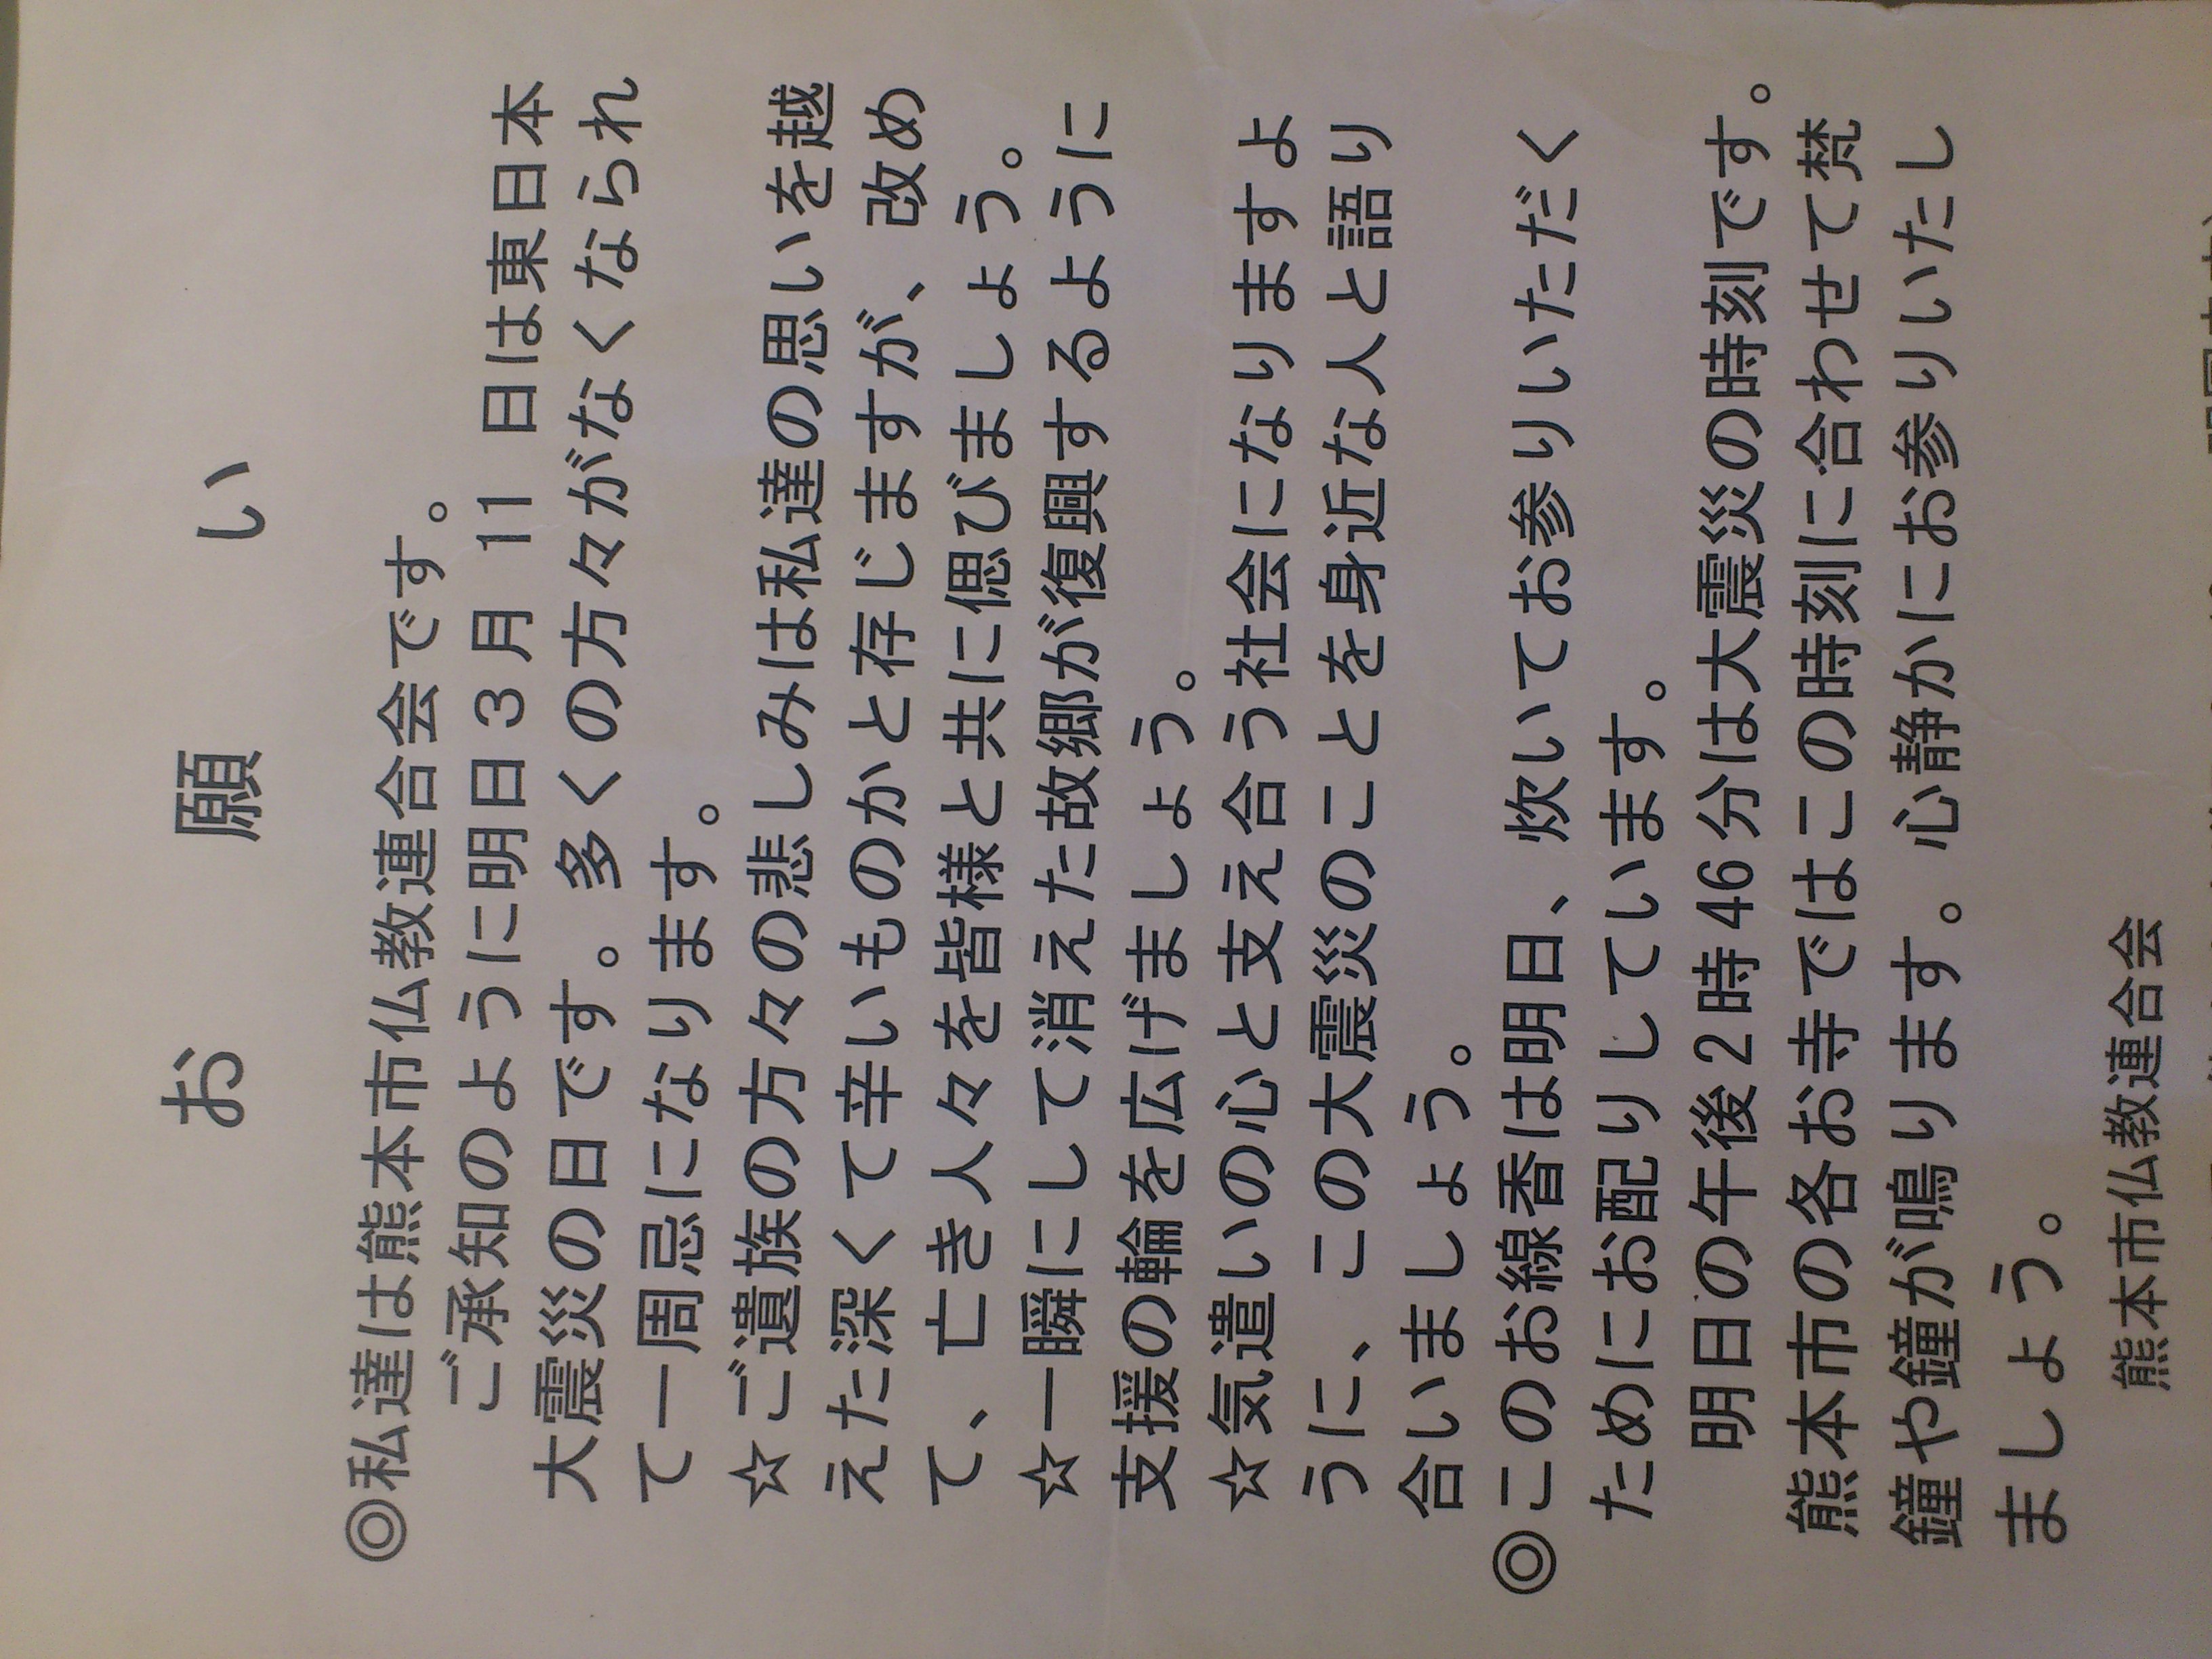 お願い
◎私達は熊本市仏教連合会です。
ご承知のように明日3月11日は東日本
大震災の日です。多くの方々がなくなられ
て一周忌になります。
☆ご遺族の方々の悲しみは私達の思いを越
えた深くて辛いものかと存じますが、改め
て、亡き人々を皆様と共に偲びましょう。
☆一瞬にして消えた故郷が復興するように
支援の輪を広げましょう。
☆気遣いの心と支え合う社会になりますよ
うに、この大震災のことを身近な人と語り
合いましょう。
◎このお線香は明日、炊いてお参りいただく
ためにお配りしています。
明日の午後2時46分は大震災の時刻です。
熊本市の各お寺ではこの時刻に合わせて梵
鐘や鐘が鳴ります。心静かにお参りいたし
ましょう。
熊本市仏教連合会